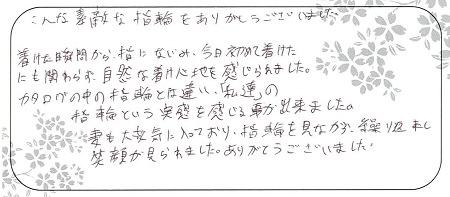 こんな素敵な指輪をありがとうございました。
着けた瞬間から、指になじみ、今日初めて着けた
にも関わらず、自然な着け心地を感じられました。
カタログの中の指輪とは違い、「私達」の
指輪という実感を感じる事が出来ました。
妻も大変気に入っており、指輪を見ながら、繰り返し
笑顔が見られました。ありがとうございました。